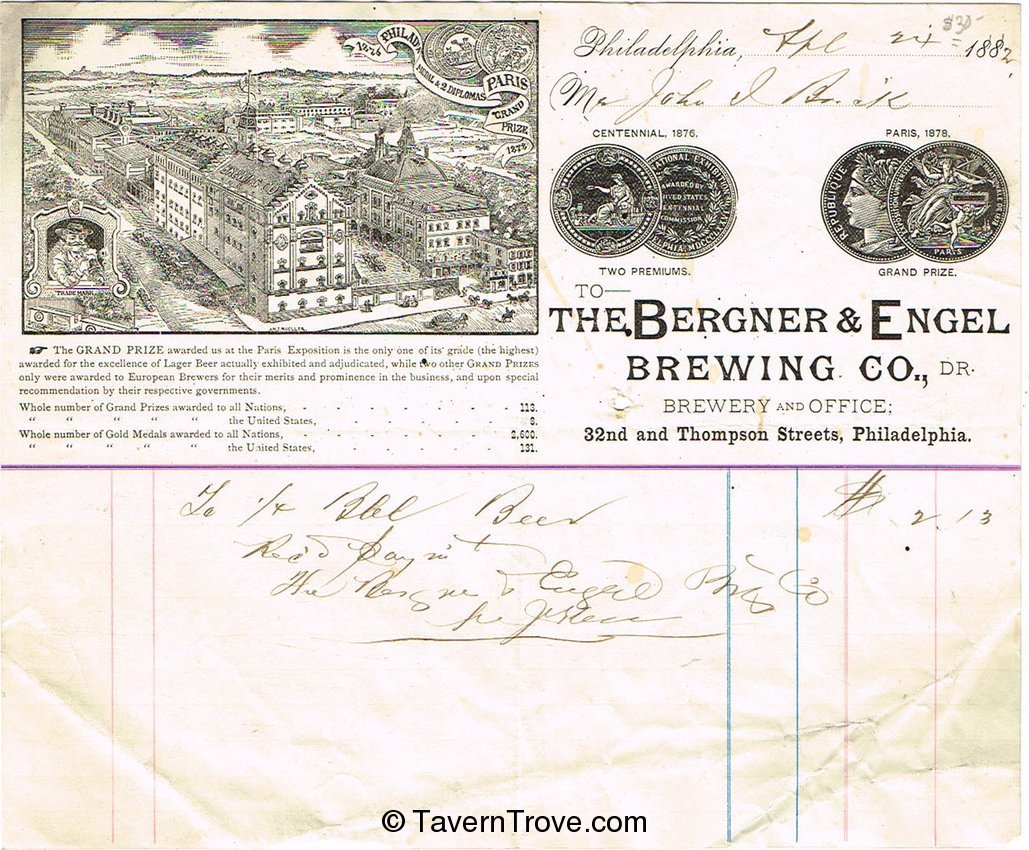 1876 PHILADA
MEDAL & 2 DIPLOMAS
PARIS
GRAND
PRIZE
1878
TRADE MARK
☞ The GRAND PRIZE awarded us at the Paris Exposition is the only one of its' grade (the highest)
awarded for the excellence of Lager Beer actually exhibited and adjudicated, while two other GRAND PRIZES
only were awarded to European Brewers for their merits and prominence in the business, and upon special
recommendation by their respective governments.
Whole number of Grand Prizes awarded to all Nations, - - - - - - - 113.
“ “ “ “ “ the United States, - - - - - - 8.
Whole number of Gold Medals awarded to all Nations, - - - - - - - 2,600.
“ “ “ “ “ the United States, - - - - - - 131.
$30-
Philadelphia, Apl 24 1882
Mr John I
CENTENNIAL, 1876.
PARIS, 1878.
AWARDED BY
UNITED STATES
CENTENNIAL
COMMISSION
REPUBLIQUE
PARIS
TWO PREMIUMS.
GRAND PRIZE.
TO—
THE BERGNER & ENGEL
BREWING CO., DR.
BREWERY AND OFFICE;
32nd and Thompson Streets, Philadelphia.
To 1/4 Bbl Beer $ 2.13
Rec'd Paym't
The Bergner & Engel Brg Co
© TavernTrove.com